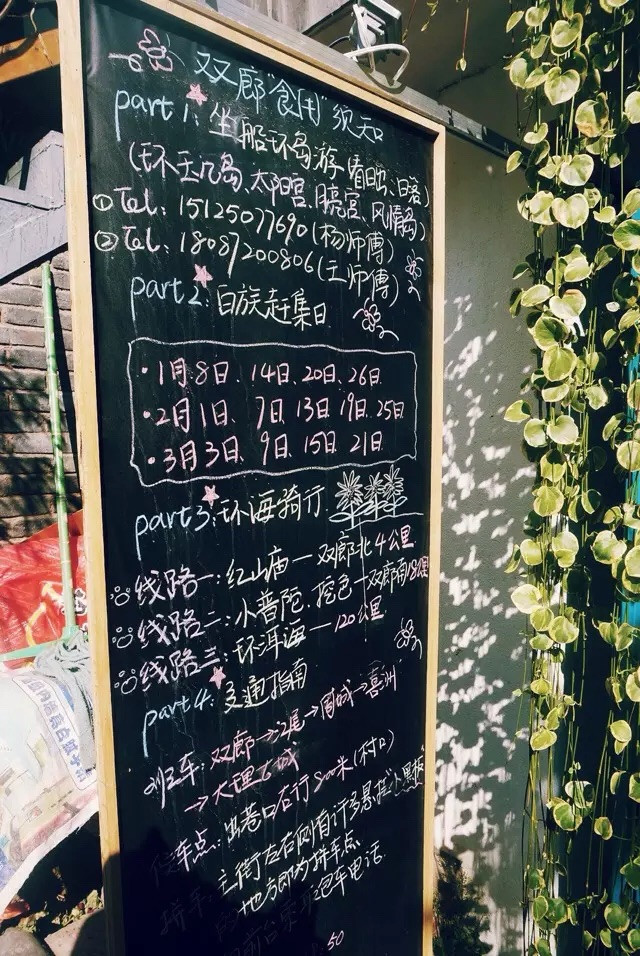 双廊"食用"须知
part 1: 坐船环岛游 看日出、日落
(环玉几岛、太阳宫、月亮宫、风情岛)
①Tel: 15125077690(杨师傅)
②Tel: 18087200806(王师傅)
part2: 白族赶集日
·1月8日、14日、20日、26日
·2月1日、7日、13日、19日、25日
·3月3日、9日、15日、21日
part3: 环海骑行
线路一: 红山庙—双廊北4公里
线路二: 小普陀、挖色—双廊南18公里
线路三: 环洱海—120公里
part4: 交通指南
班车: 双廊→江尾→周城→喜洲
→大理古城
车点: 出巷口右行800米(村口)
主街左右侧有许多悬挂"小黑板"
地方即为拼车点
包车电话
50